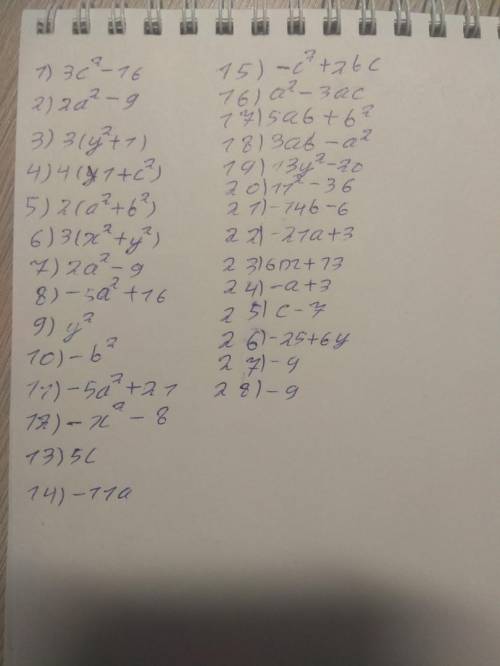 1) 3c² - 16
2) 2a² - 9
3) 3(y² + 1)
4) 4(1 + c²)
5) 2(a² + b²)
6) 3(x² + y²)
7) 2a² - 9
8) -5a² + 16
9) y²
10) -b²
11) -5a² + 21
12) -x² - 8
13) 5c
14) -11a
15) -c² + 2bc
16) a² - 3ac
17) 5ab + b²
18) 3ab - a²
19) 13y² - 20
20) 11² - 36
21) -14b - 6
22) -21a + 3
23) 6m + 13
24) -a + 3
25) c - 7
26) -25 + 6y
27) -9
28) -9